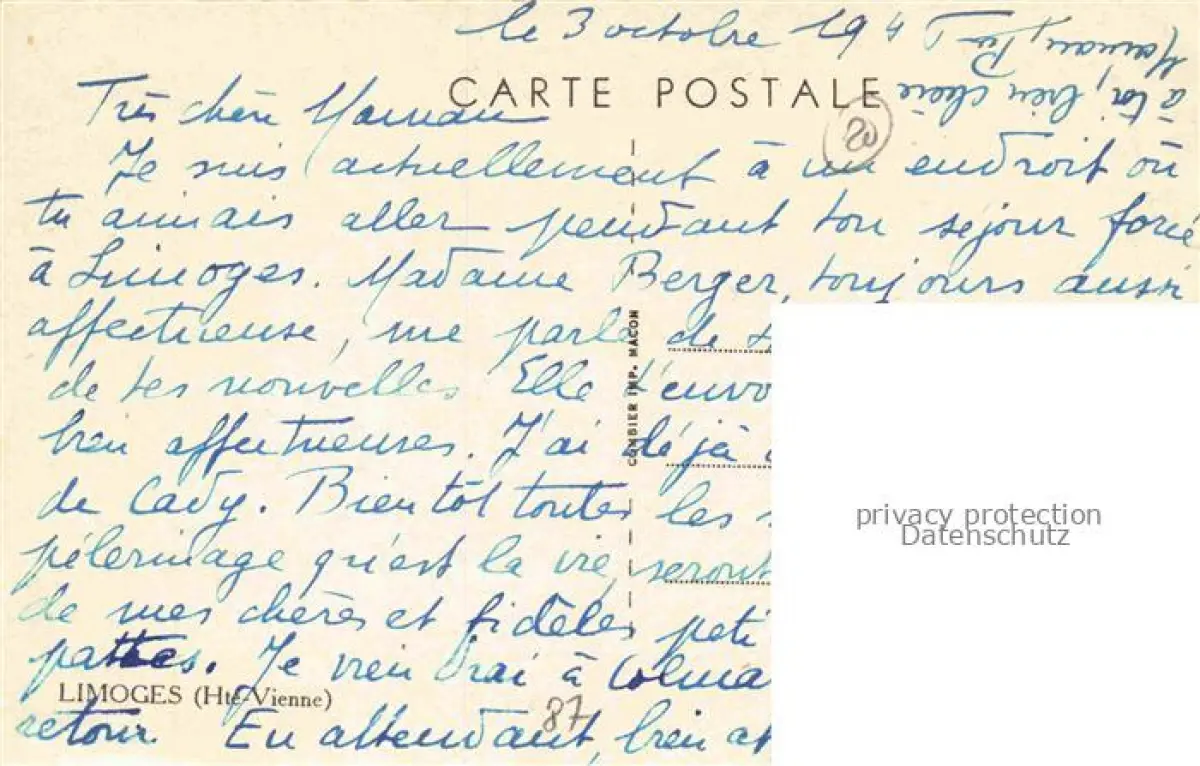 le 3 octobre 194
CARTE POSTALE
20
Très chère Maman
Je suis actuellement à un endroit où
tu aimais aller pendant ton séjour forcé
à Limoges. Madame Berger, toujours aussi
affectueuse, me parle de
de tes nouvelles Elle t'envo
bien affectueuses. J'ai déjà
de Cady. Bientôt toutes les
pélerinage qu'est la vie, seront
de mes chères et fidèles peti
pattes. Je viendrai à Colma
retour. En attendant, bien
à toi, bien chère
Maman,
COMBIER IMP. MACON
LIMOGES (Hte-Vienne)
87
privacy protection
Datenschutz